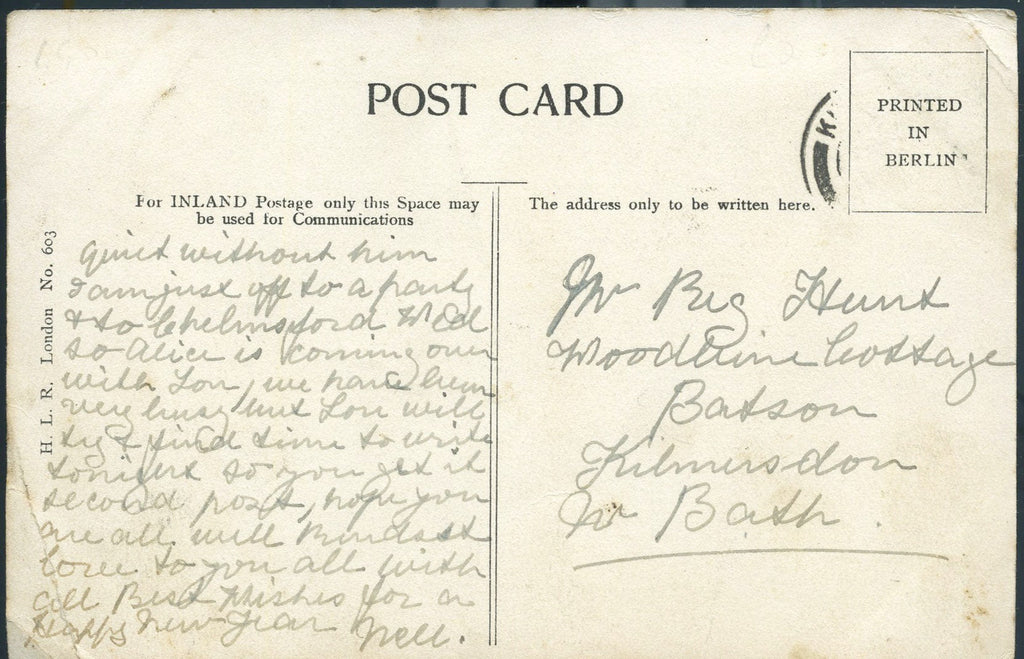 POST CARD
PRINTED
IN
BERLIN
For INLAND Postage only this Space may
be used for Communications
The address only to be written here.
H. L. R. London No. 603
quiet without him
I am just off to a party
& to Chelmsford Wed
so Alice is coming over
with Lou, we have been
very busy but Lou will
try & find time to write
tonight so you get it
second post, hope you
are all well Kindest
love to you all with
all Best Wishes for a
Happy New Year Nell.
Mr Reg Hunt
Woodbine Cottage
Batson
Kilmersdon
Nr Bath.